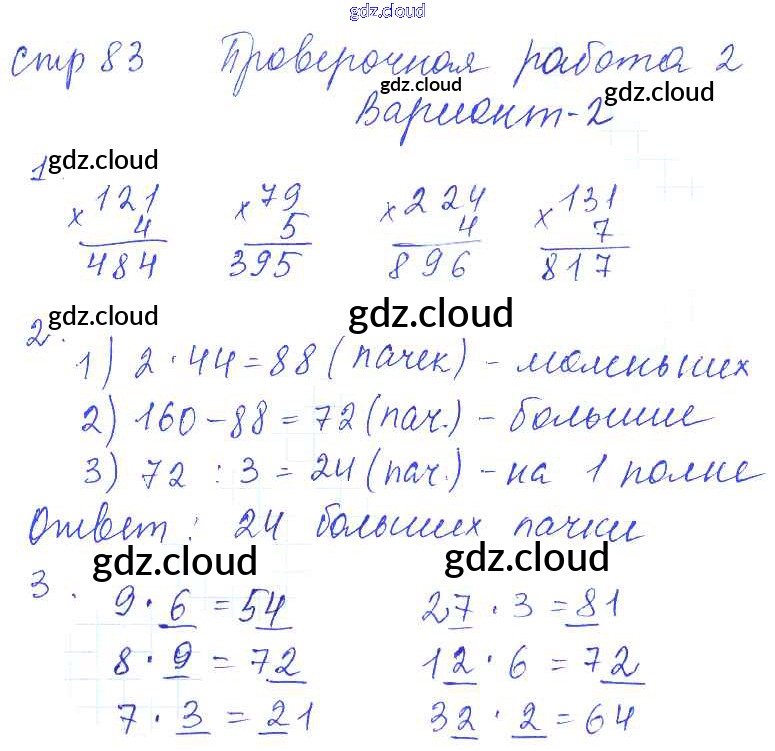 gdz.cloud
стр 83 Проверочная работа 2
gdz.cloud gdz.cloud
Вариант-2
gdz.cloud
1.
× 121 × 79 × 224 × 131
4 5 4 7
484 395 896 817
gdz.cloud gdz.cloud
2.
1) 2 · 44 = 88 (пачек) - маленьких
2) 160 - 88 = 72 (пач.) - большие
3) 72 : 3 = 24 (пач.) - на 1 полке
Ответ: 24 больших пачки
gdz.cloud gdz.cloud
3.
9 · 6 = 54 27 · 3 = 81
8 · 9 = 72 12 · 6 = 72
7 · 3 = 21 32 · 2 = 64